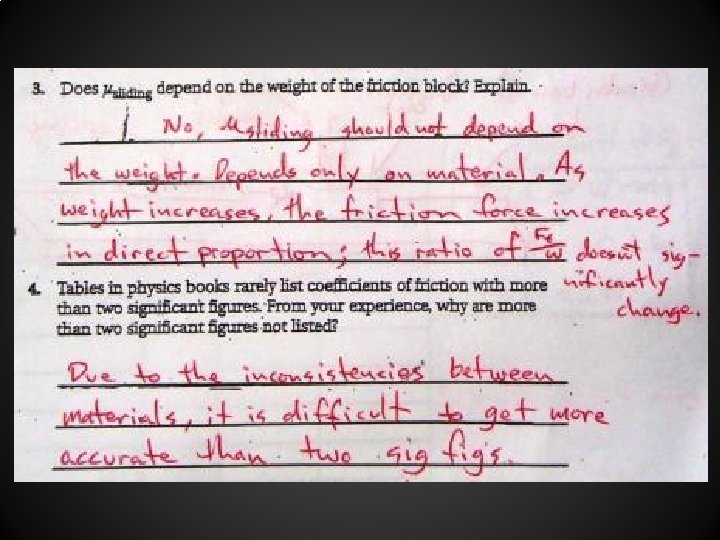 3. Does μsliding depend on the weight of the friction block? Explain.
1. No, μsliding should not depend on
the weight. Depends only on material. As
weight increases, the friction force increases
in direct proportion; this ratio of Ff/W doesn't sig-
nificantly
change.
4. Tables in physics books rarely list coefficients of friction with more
than two significant figures. From your experience, why are more
than two significant figures not listed?
Due to the inconsistencies between
materials, it is difficult to get more
accurate than two sig fig's.